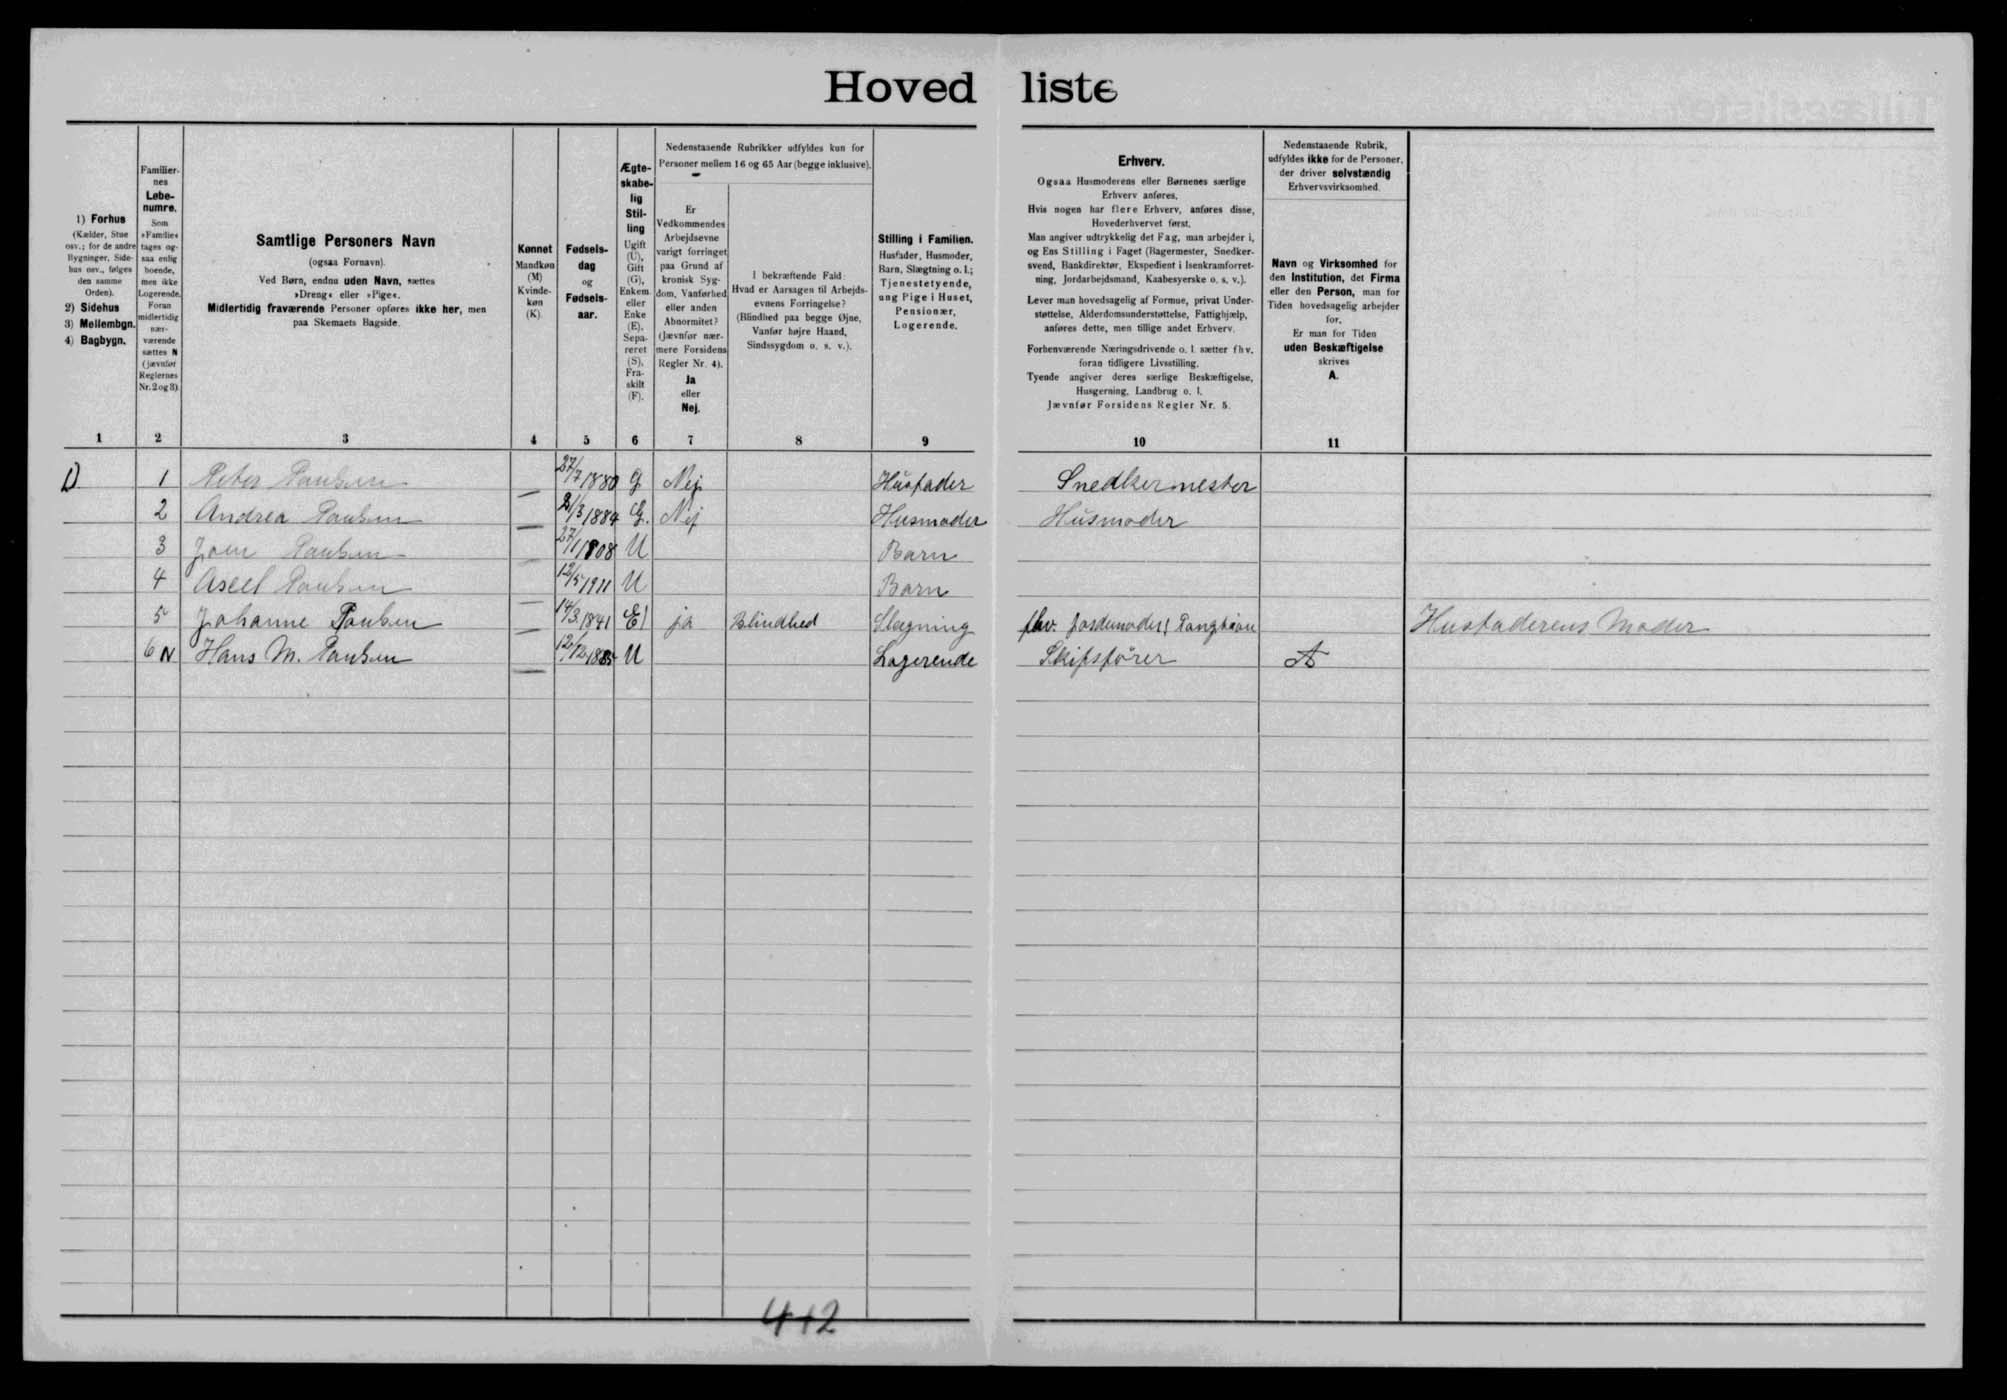 Hovedliste
1) Forhus
(Kælder, Stue
osv.; for de andre
Bygninger, Side-
hus osv., følges
den samme
Orden).
2) Sidehus
3) Mellembgn.
4) Bagbygn.
Familier-
nes
Løbe-
numre.
Som
»Familie«
tages og-
saa enlig
boende,
men ikke
Logerende.
Foran
midlertidig
nær-
værende
sættes N
(jævnfør
Reglernes
Nr. 2 og 3).
Samtlige Personers Navn
(ogsaa Fornavn).
Ved Børn, endnu uden Navn, sættes
»Dreng« eller »Pige«.
Midlertidig fraværende Personer opføres ikke her, men
paa Skemaets Bagside.
Kønnet
Mandkøn
(M)
Kvinde-
køn
(K).
Fødsels-
dag
og
Fødsels-
aar.
Ægte-
skabe-
lig
Stil-
ling
Ugift
(U),
Gift
(G),
Enkem.
eller
Enke
(E),
Sepa-
reret
(S),
Fra-
skilt
(F).
Nedenstaaende Rubrikker udfyldes kun for
Personer mellem 16 og 65 Aar (begge inklusive).
Er
Vedkommendes
Arbejdsevne
varigt forringet
paa Grund af
kronisk Syg-
dom, Vanførhed
eller anden
Abnormitet?
(Jævnfør nær-
mere Forsidens
Regler Nr. 4).
Ja
eller
Nej.
I bekræftende Fald:
Hvad er Aarsagen til Arbejds-
evnens Forringelse?
(Blindhed paa begge Øjne,
Vanfør højre Haand,
Sindssygdom o. s. v.).
Stilling i Familien.
Husfader, Husmoder,
Barn, Slægtning o. l.;
Tjenestetyende,
ung Pige i Huset,
Pensionær,
Logerende.
Erhverv.
Ogsaa Husmoderens eller Børnenes særlige
Erhverv anføres.
Hvis nogen har flere Erhverv, anføres disse,
Hovederhvervet først.
Man angiver udtrykkelig det Fag, man arbejder i,
og Ens Stilling i Faget (Bagermester, Snedker-
svend, Bankdirektør, Ekspedient i Isenkramforret-
ning, Jordarbejdsmand, Kaabesyerske o. s. v.).
Lever man hovedsagelig af Formue, privat Under-
støttelse, Alderdomsunderstøttelse, Fattighjælp,
anføres dette, men tillige andet Erhverv.
Forhenværende Næringsdrivende o. l. sætter fhv.
foran tidligere Livsstilling.
Tyende angiver deres særlige Beskæftigelse,
Husgerning, Landbrug o. l.
Jævnfør Forsidens Regler Nr. 5.
Nedenstaaende Rubrik,
udfyldes ikke for de Personer,
der driver selvstændig
Erhvervsvirksomhed.
Navn og Virksomhed for
den Institution, det Firma
eller den Person, man for
Tiden hovedsagelig arbejder
for.
Er man for Tiden
uden Beskæftigelse
skrives
A.
1 2 3 4 5 6 7 8 9 10 11
1) 1 Peter Paulsen 27/7 1880 G Nej Husfader Snedkermester
2 Andrea Paulsen 21/3 1884 G. Nej Husmoder Husmoder
3 Paulsen 27/1 1908 U Barn
4 Axcel Paulsen 12/5 1911 U Barn
5 Johanne Paulsen 14/3 1841 E ja Blindhed Slægning fhv. Husfaderens Moder
6 N Hans M. Paulsen 12/12 1885 U Logerende Skibsfører A
4+2